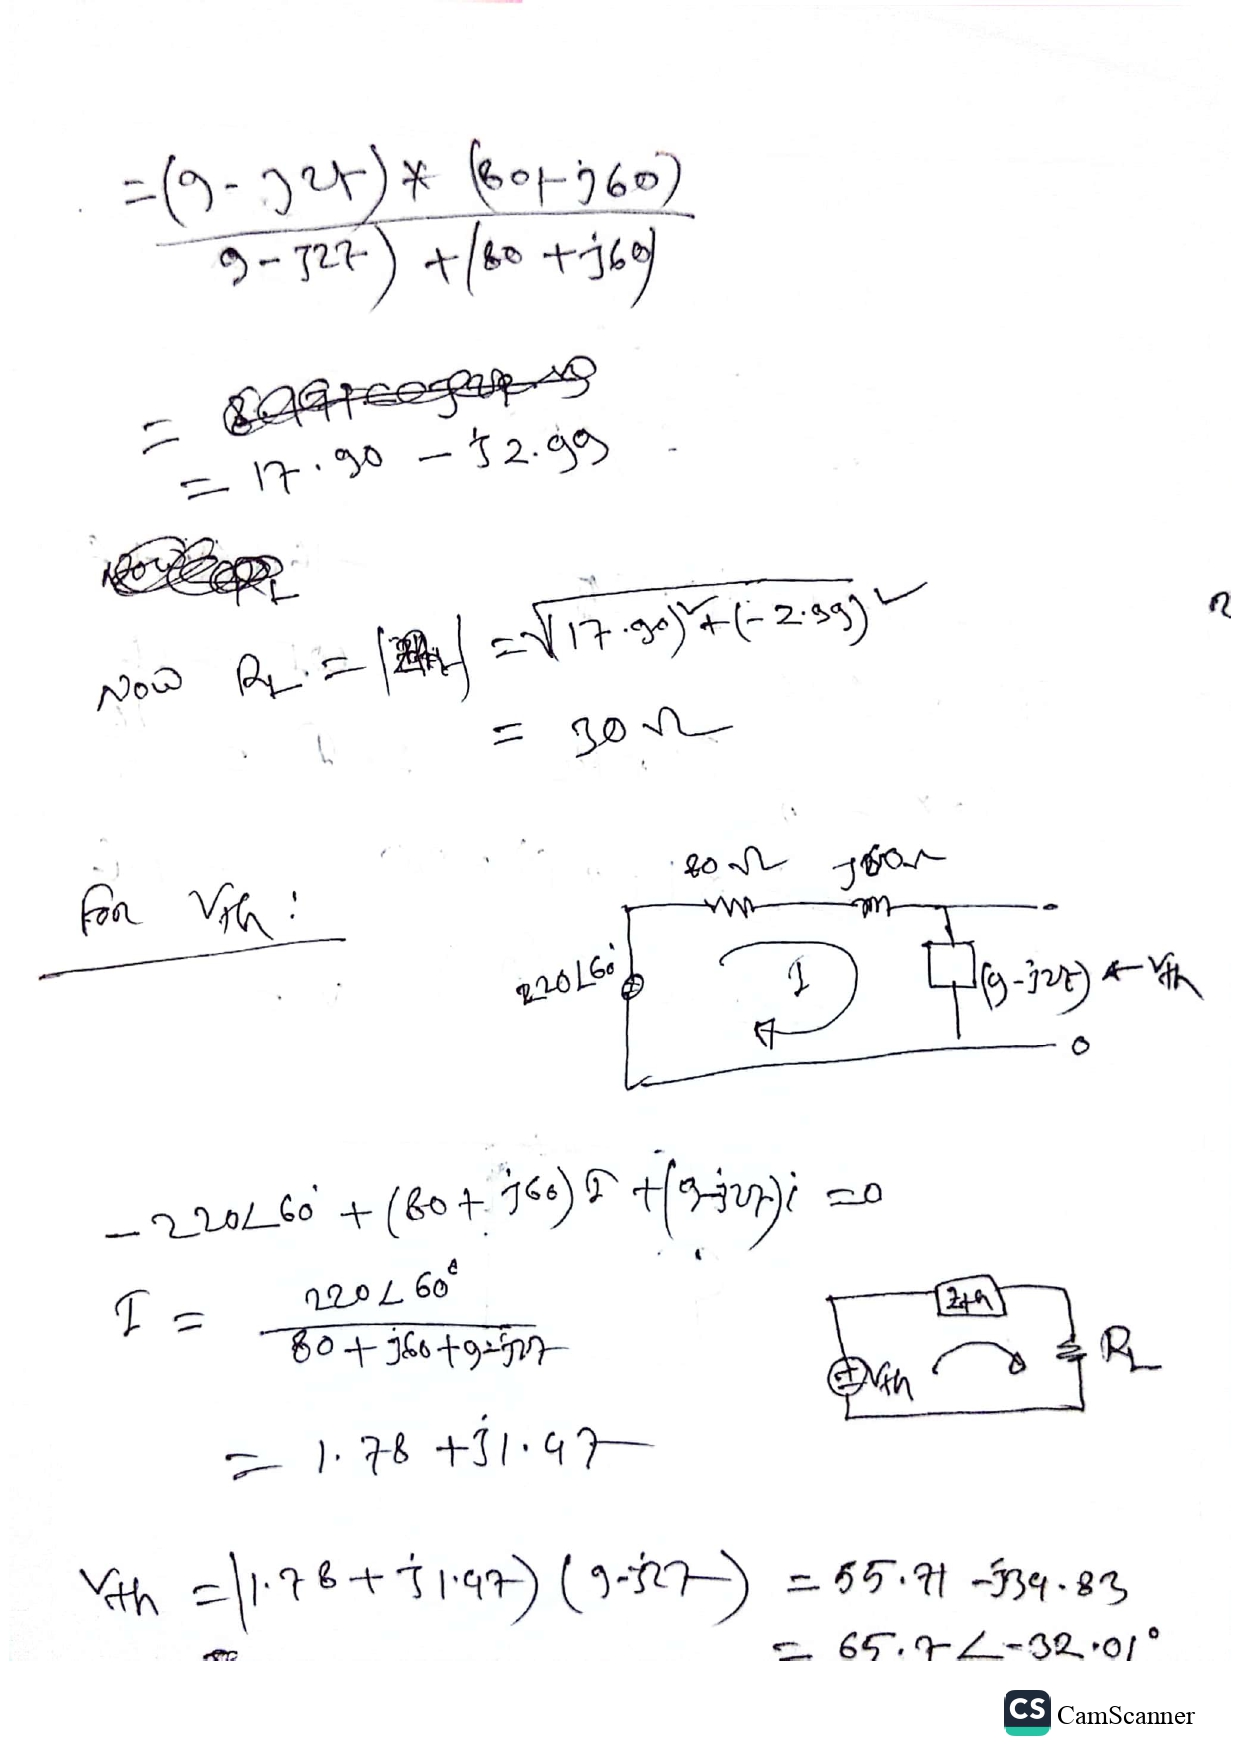 =(9-j27)*(80+j60)
9-j27)+(80+j60)
=
= 17.90 - j2.99
Now R_L = | | = √17.90)²+(-2.99)²
= 30Ω
For Vth:
80Ω j60Ω
220∠60°
I
(9-j27) ← Vth
-220∠60° + (80+j60) I + (9-j27)i =0
I = 220∠60°
80+j60+9-j27
Zth
Vth
R_L
= 1.78 + j1.47
Vth = (1.78 + j1.47) (9-j27) = 55.71 - j34.83
= 65.7∠-32.01°
CS CamScanner